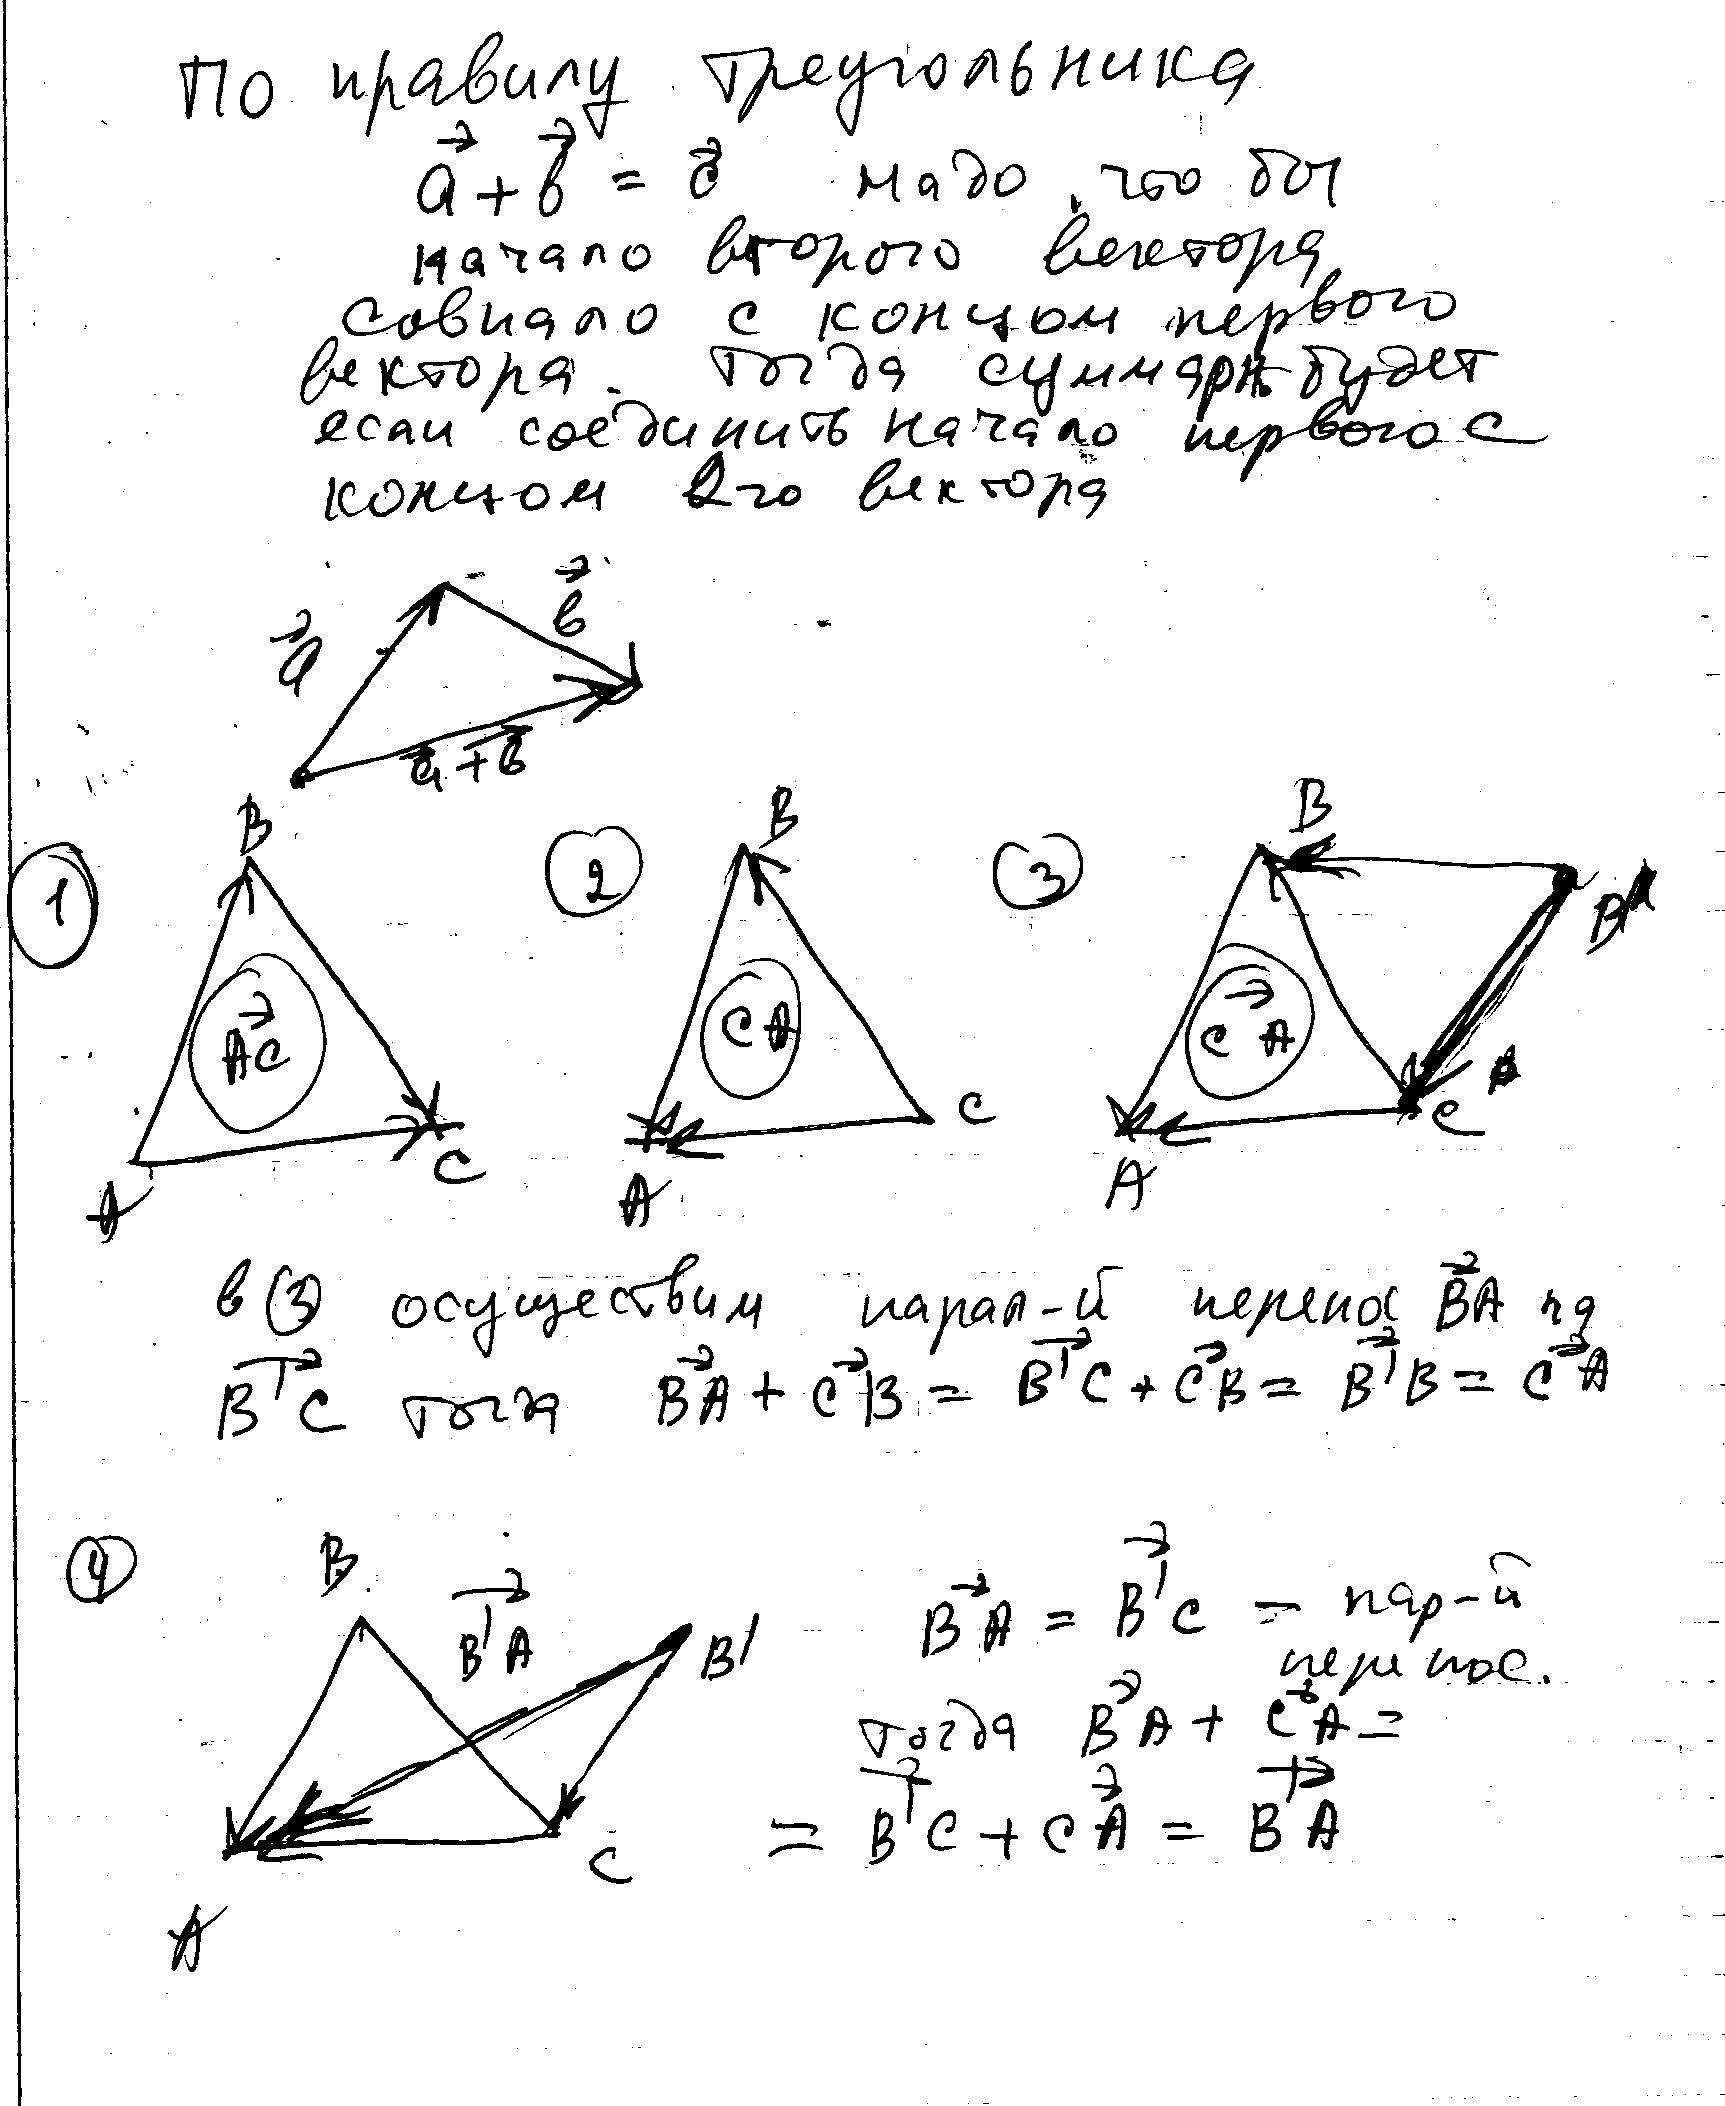 По правилу треугольника
a⃗ + b⃗ = c⃗ надо что бы
начало второго вектора
совпало с концом первого
вектора. тогда суммарн будет
если соединить начало первого с
концом 2го вектора
a⃗
b⃗
a⃗ + b⃗
1
B
AC⃗
A
C
2
B
CA
A
C
3
B
CA⃗
A
C
в (3) осуществим парал-й перенос BA⃗ на
B'C⃗ тогда BA⃗ + CB⃗ = B'C⃗ + CB⃗ = B'B⃗ = CA⃗
4
B
B'A⃗
B'
A
C
BA⃗ = B'C⃗ – пар-й
перенос.
тогда BA⃗ + CA⃗ =
= B'C⃗ + CA⃗ = B'A⃗